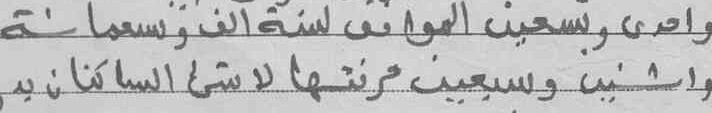 واحدى وتسعين الموافق لسنة الف وتسعمائة
واثنين وسبعين مرتتها لاشئ الساكنان بد